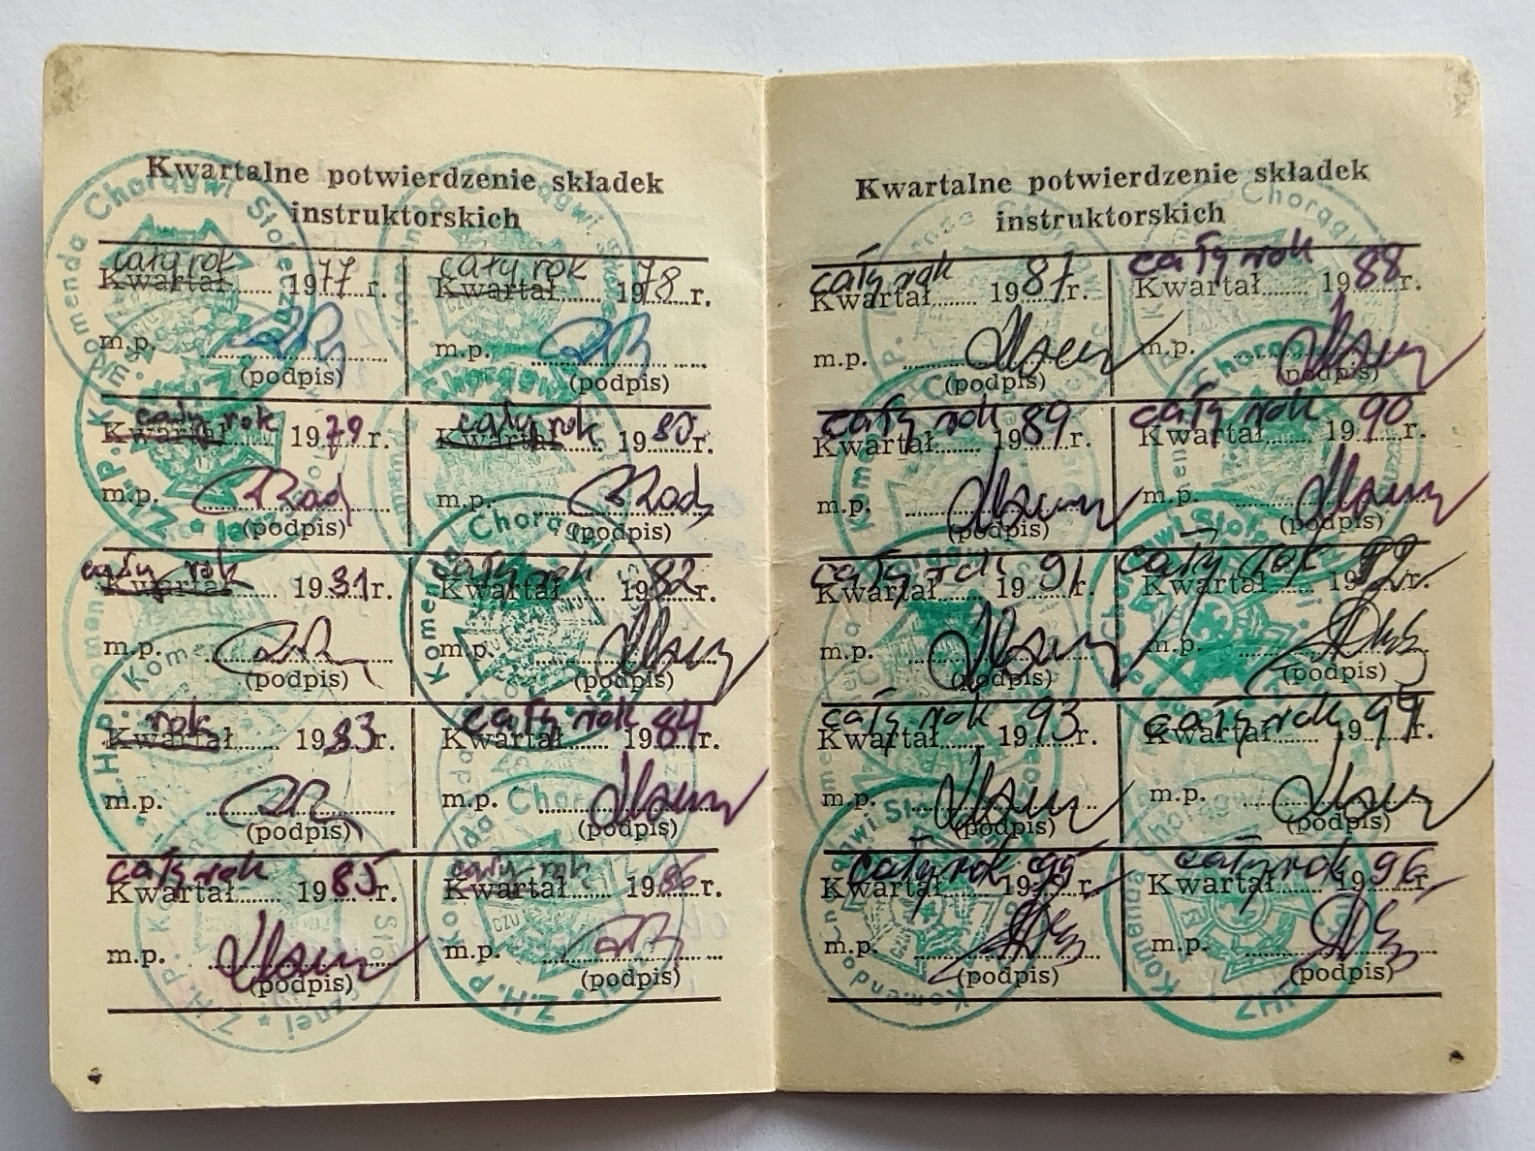 Kwartalne potwierdzenie składek
instruktorskich
cały rok
Kwartał........ 1977 r.
m.p.
(podpis)
cały rok
Kwartał........ 1978 r.
m.p.
(podpis)
cały rok
Kwartał 1979 r.
m.p.
(podpis)
cały rok
Kwartał........ 1980 r.
m.p.
(podpis)
cały rok
Kwartał........ 1981 r.
m.p.
(podpis)
cały rok
Kwartał........ 1982 r.
m.p.
(podpis)
rok
Kwartał........ 1983 r.
m.p.
(podpis)
cały rok
Kwartał........ 1984 r.
m.p.
(podpis)
cały rok
Kwartał........ 1985 r.
m.p.
(podpis)
cały rok
Kwartał........ 1986 r.
m.p.
(podpis)
Kwartalne potwierdzenie składek
instruktorskich
cały rok
Kwartał........ 1987 r.
m.p.
(podpis)
cały rok
Kwartał........ 1988 r.
m.p.
(podpis)
cały rok
Kwartał........ 1989 r.
m.p.
(podpis)
cały rok
Kwartał........ 1990 r.
m.p.
(podpis)
cały rok
Kwartał........ 1991 r.
m.p.
(podpis)
cały rok
Kwartał........ 19 r.
m.p.
(podpis)
cały rok
Kwartał........ 1993 r.
m.p.
(podpis)
cały rok
Kwartał........ 1994 r.
m.p.
(podpis)
cały rok
Kwartał........ 1995 r.
m.p.
(podpis)
cały rok
Kwartał........ 1996 r.
m.p.
(podpis)
Komenda Chorągwi Stołecznej Z.H.P.